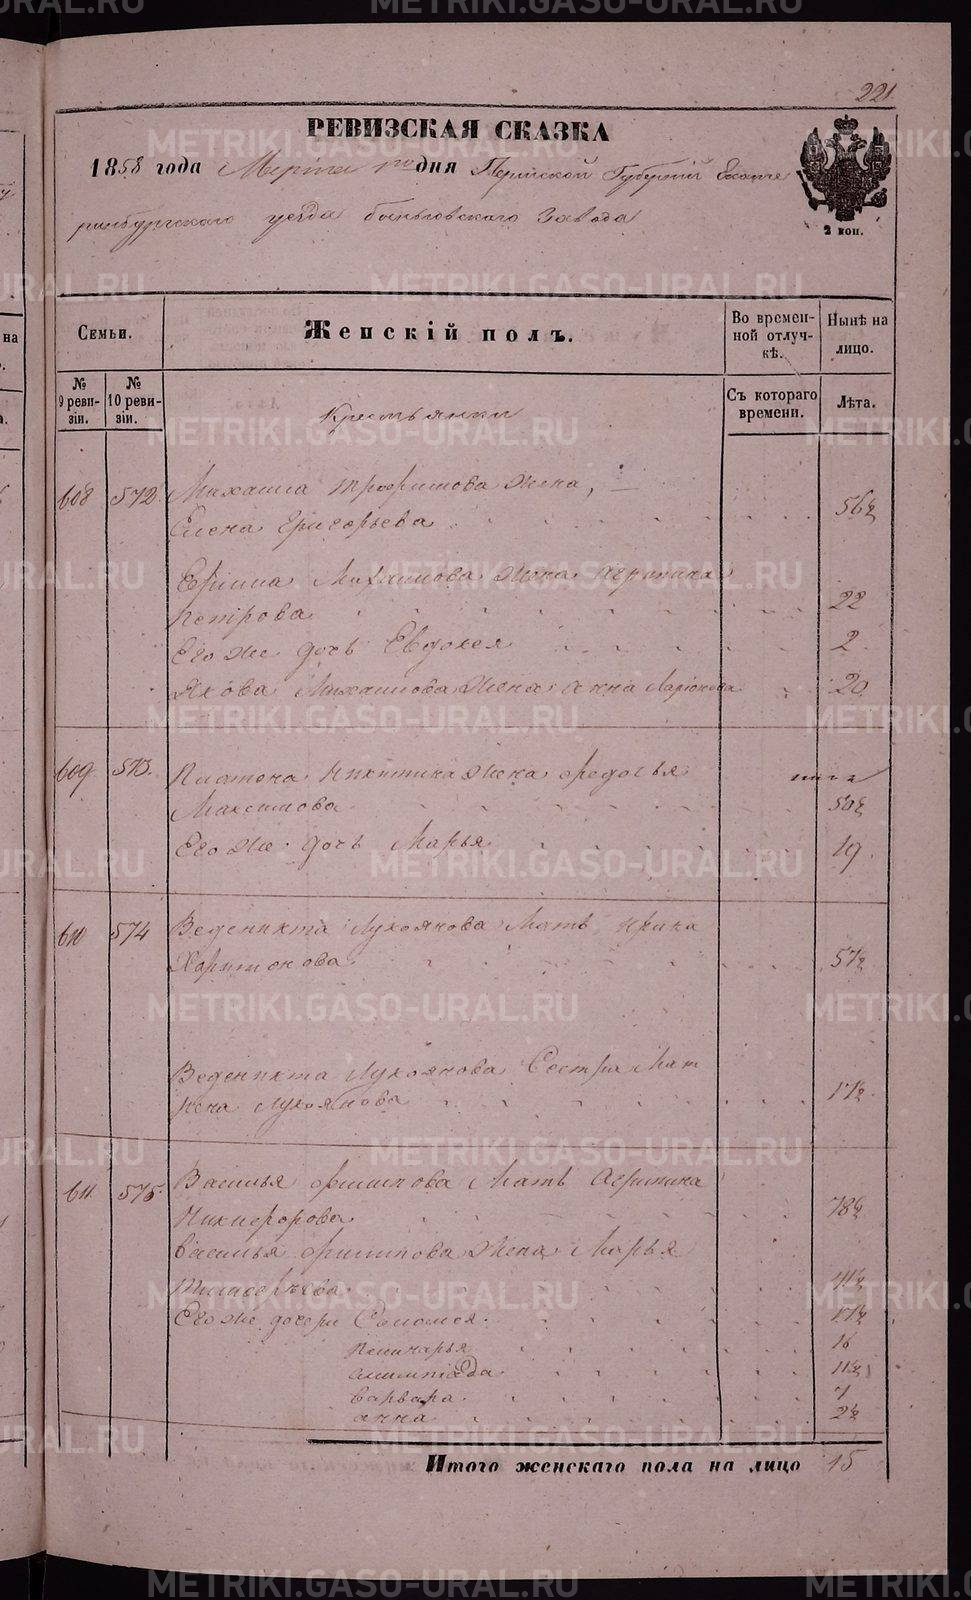 221
РЕВИЗСКАЯ СКАЗКА
1858 года Марта 1го дня Пермской Губернiи Екате
ринбургскаго уезда Быньговскаго Завода
2 коп.
Семьи.
Женскiй полъ.
Во времен-
ной отлуч-
кѣ.
Нынѣ на
лицо.
№
9 реви-
зiи.
№
10 реви-
зiи.
Съ котораго
времени.
Лѣта.
Крестьянки
608 572 Михаила Трофимова Жена,
Елена Григорьева 56½
Ефима Михаилова Жена Агрипина
Петрова 22
Его же дочь Евдокея 2
Якова Михаилова Жена Анна Ларiонова 20
609 573. Платона Никитина Жена Федосья
Максимова 50½
Его же дочь Марья 19
610 574 Веденикта Лукоянова Мать Ирина
Харитонова 57½
Веденикта Лукоянова Сестра Мат
рена Лукоянова 17½
611 575. Василья Филипова Мать Агрипина
Никифорова 78½
Василья Филипова Жена Марья
Тимофеѣва 41½
Его же дочери Соломея 17½
16
Алимпiада 11½
Варвара 7
Анна 2½
Итого женскаго пола на лицо 15
METRIKI.GASO-URAL.RU